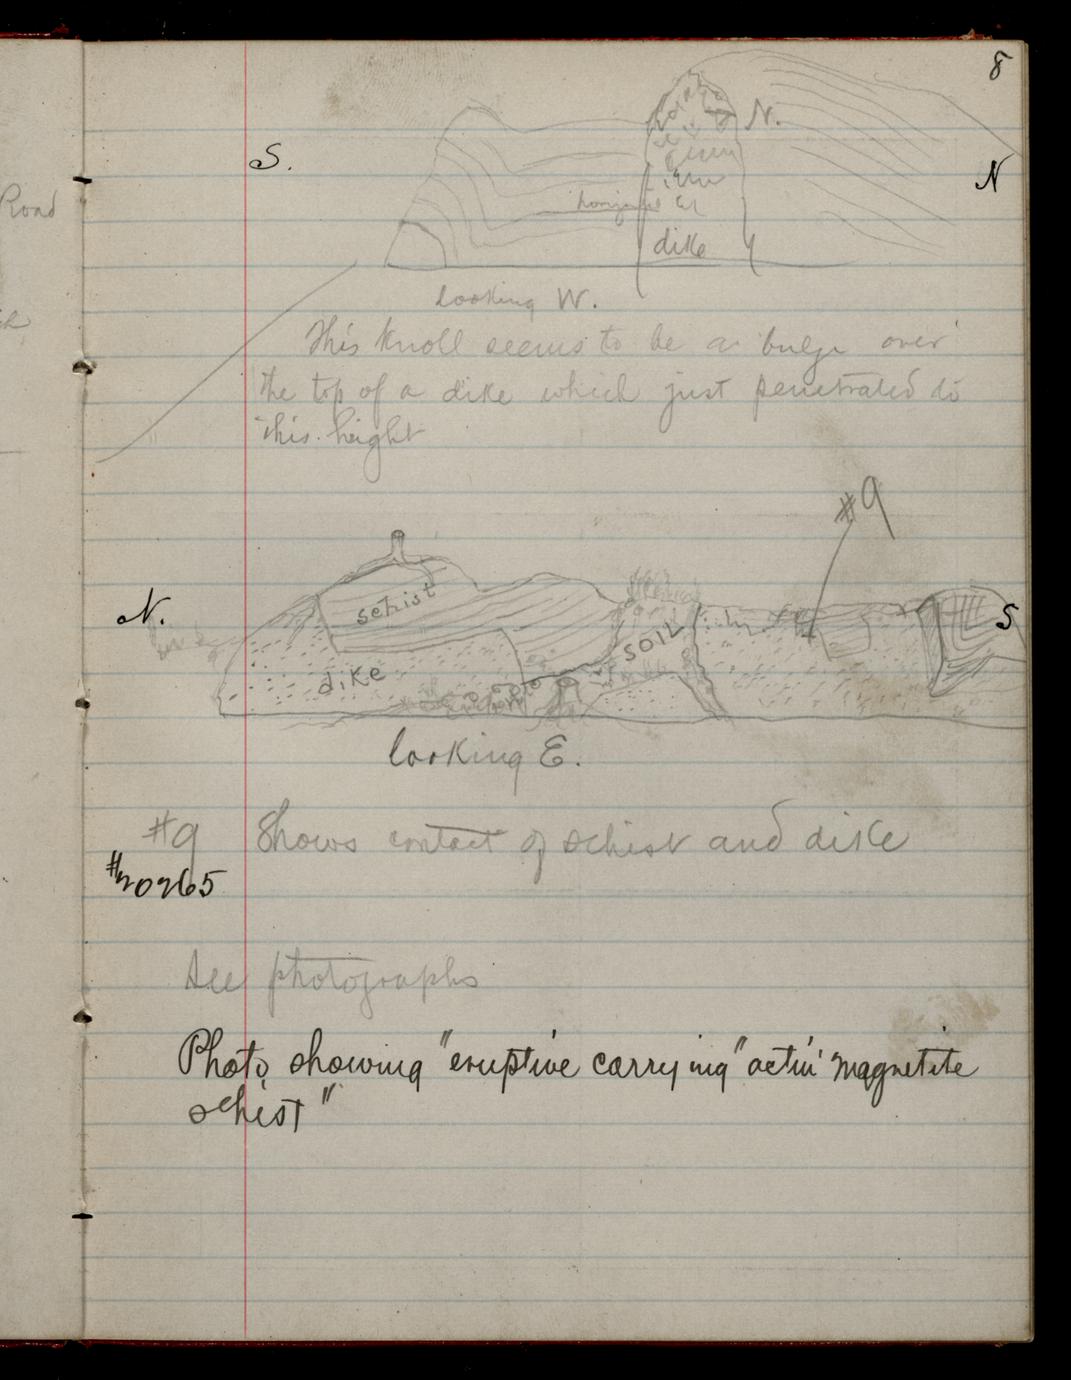 8
Road
S.
N.
N
dike
looking W.
This knoll seems to be a bulge over
the top of a dike which just penetrated to
this height
#9
N.
schist
SOIL
S
dike
looking E.
#9 Shows contact of schist and dike
#20265
See photographs
Photo showing "eruptive carrying" actin' magnetite
schist"